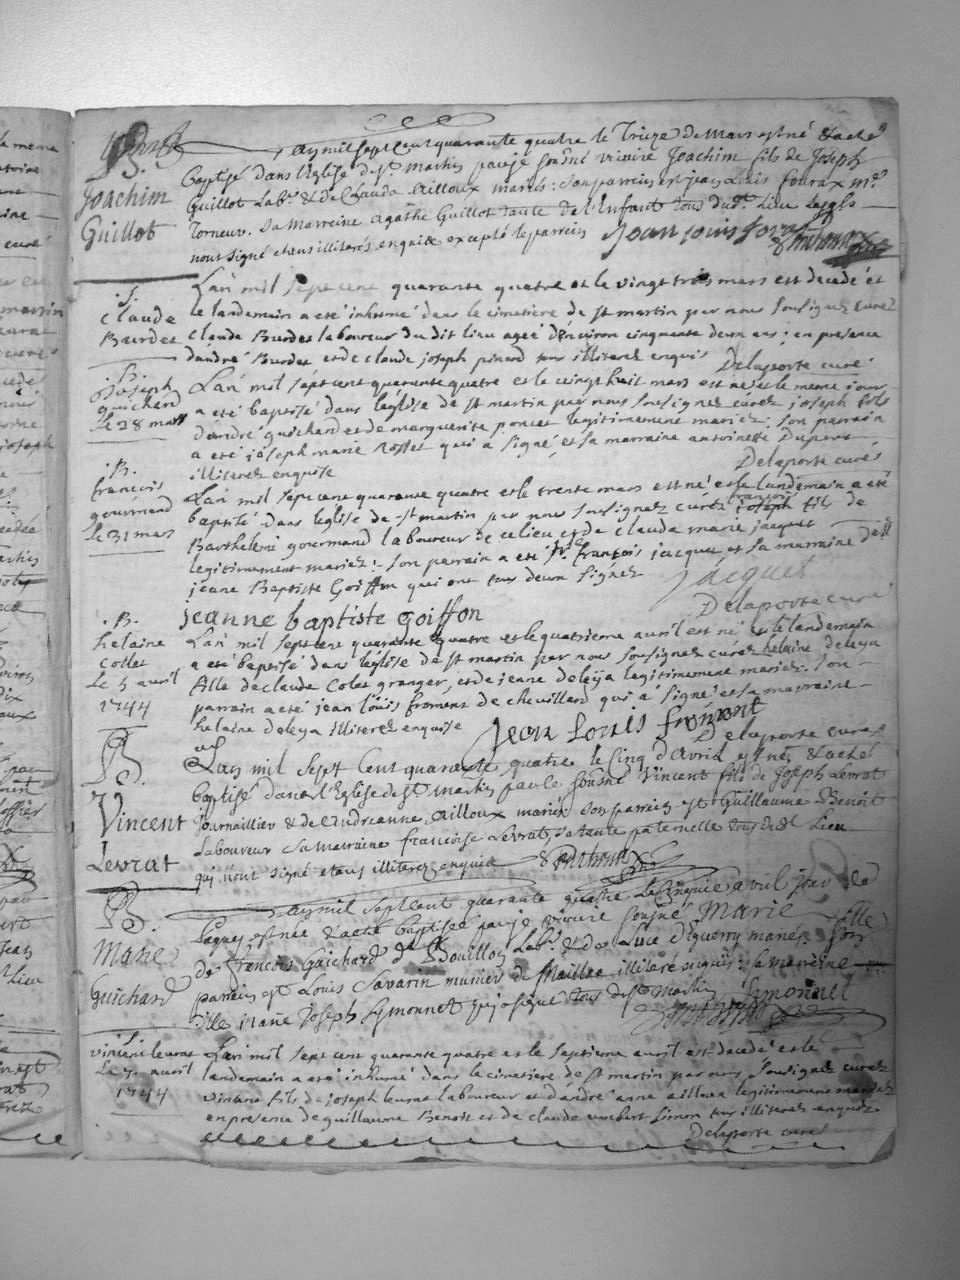 B.
Joachim
Guillot
Lan mil sept cent quarante quatre le Treize de Mars est né & a eté
Baptisé dans l'Eglise de St Martin par je sousné vicaire Joachim fils de Joseph
Guillot Labr. & de Clauda Ailloux mariés: son parrein est jean
Torneur. Sa Marreine agathe Guillot tante de l'Enfant tous dudt. Lieu
nont signé etans illiterés enquis excepté le parrein
S.
claude
Burdet
L'an mil sept cent quarante quatre et le vingt trois mars est decedé et
le landemain a eté inhumé dans le cimetiere de st martin par nous sousigné curé
claude Burdet laboureur du dit lieu agé d'environ cinquante deux ans; en presence
d'andré Burdet et de claude joseph pinard tous illiterez enquis
Delaporte curé
B.
joseph
guichard
le 28 mars
L'an mil sept cent quarante quatre et le vingt huit mars est né et le meme jour
a eté baptisé dans leglise de st martin par nous sousignez curéz joseph fils
d'andré guichard et de marguerite poncet legitimement mariez; son parrain
a eté joseph marie Rosset qui a signé, et sa marraine antoinette Dupont
illiterez enquise
Delaporte curé
B.
francois
gourmand
le 31 mars
L'an mil sept cent quarante quatre et le trente mars est né et le landemain a eté
baptisé dans leglise de st martin par nous sousignez curéz françois joseph fils de
Barthelemi gourmand laboureur de ce lieu et de claude marie jacquet
legitimement mariez: son parrain a eté Sr. françois jacquet et sa marraine dlle
jeane Baptiste Goiffon qui ont tous deux signez
Jacquet
jeanne baptiste goiffon
Delaporte curé
B.
helaine
collet
le 5 avril
1744
L'an mil sept cent quarante quatre et le quatrieme avril est né et le landemain
a eté baptisé dans leglise de st martin par nous sousignez curéz helaine deleya
fille de claude Colet granger, et de jeane deleya legitimement mariez. son
parrain a eté jean louis froment de chevillard qui a signé et sa marraine
helaine deleya illiterez enquise
Jean Louis froment
Delaporte curé
B.
Vincent
Levrat
Lan mil sept Cent quarante quatre le Cinq d'Avril est né & a eté
Baptisé dans l'Eglise de St Martin par le sousné Vincent fils de Joseph Levrat
Journaillier & de Andreanne Ailloux mariés son parrein est Guillaume Benoit
Laboureur sa marraine francoise Levrat sa tante paternelle tous dudt Lieu
qui n'ont signé etans illiterez enquis
B.
Marie
Guichard
Lan mil sept Cent quarante quatre Le Cinquie avril jour de
Paques est née & a eté Baptisée par je vicaire sousné Marie fille
de francois Guichard dt Bouillon Labr. & de Luce d'Eguerry mariés son
parrein est Louis Savarin munier de Maillat illiteré enquis: sa marreine
dlle Joseph Symonnet qui a signé tous de St Martin
Symonnet
S.
vincent leurat
le 7. avril
1744
L'an mil sept cent quarante quatre et le septieme avril est decedé et le
landemain a eté inhumé dans le cimetiere de st martin par nous sousignez curéz
vincent fils de joseph leurat laboureur et d'andré anne ailloux legitimement mariez
en presence de guillaume Benoit et de claude humbert simon tous illiterez enquis
Delaporte curé